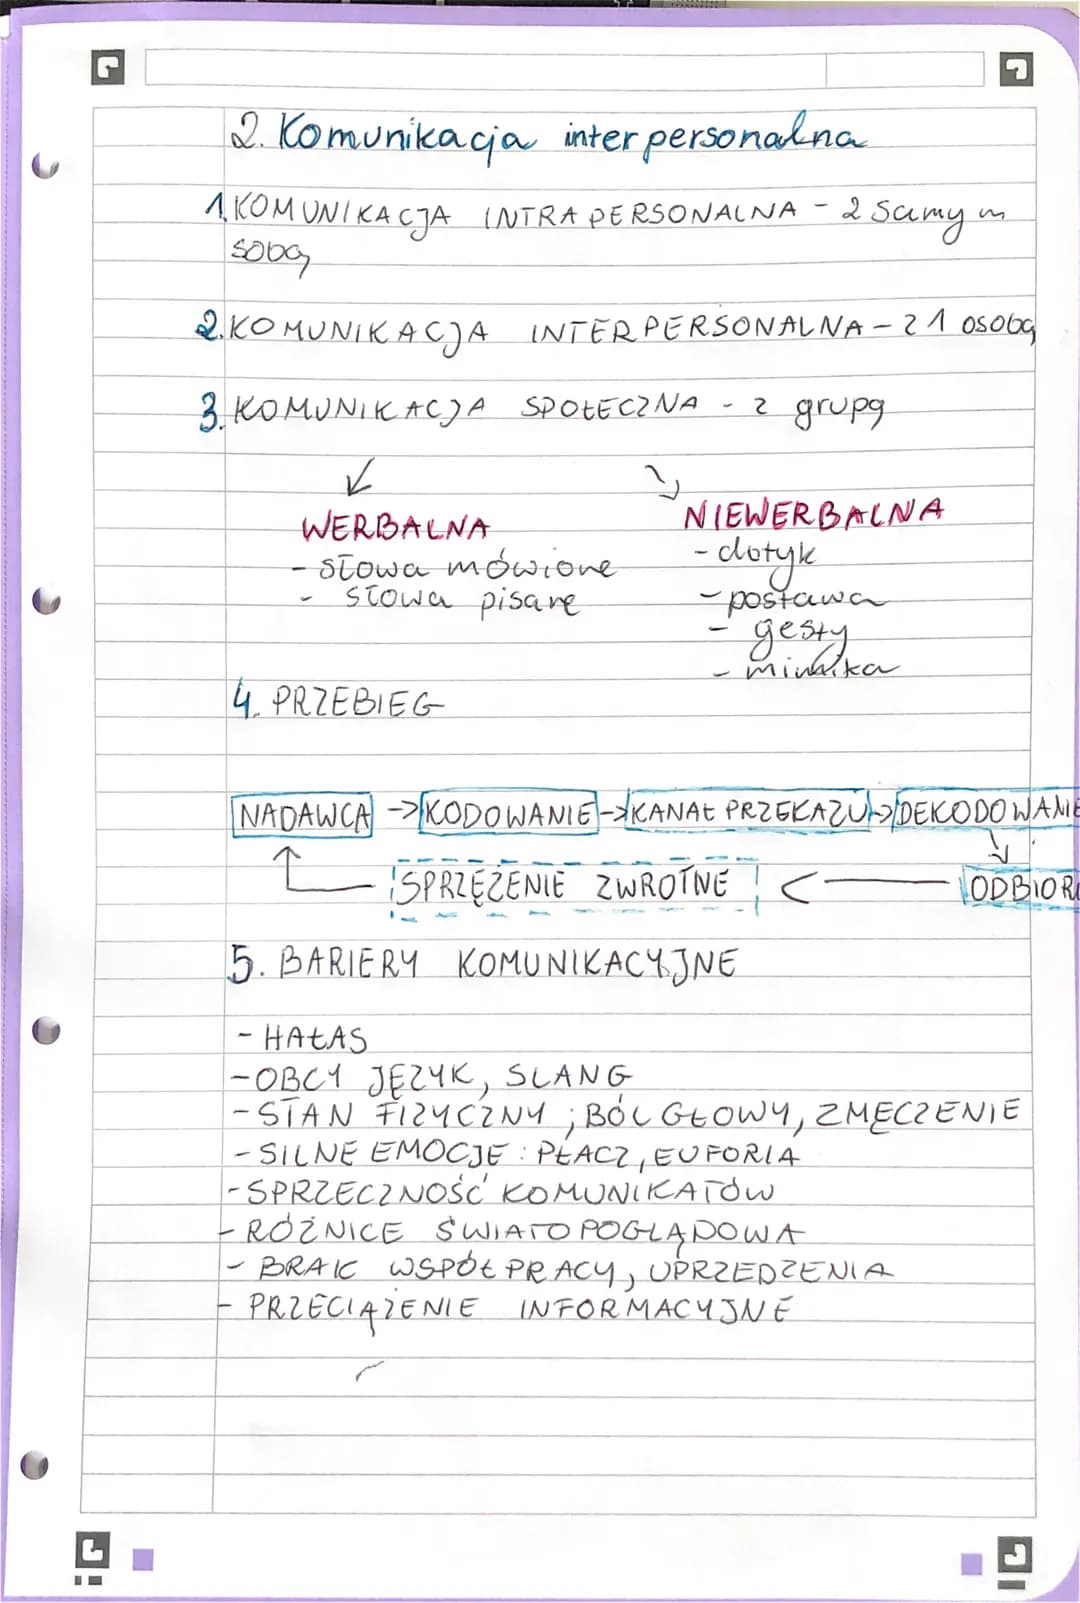 2. Komunikacja interpersonalna
1. KOMUNIKACJA INTRAPERSONALNA - z samym
sobą
2. KOMUNIKACJA INTERPERSONALNA - z 1 osobą
3. KOMUNIKACJA SPOŁECZNA - z grupą
WERBALNA
NIEWERBALNA
- słowa mówione
- słowa pisane
- dotyk
- postawa
- gesty
- mimika
4. PRZEBIEG
NADAWCA -> KODOWANIE -> KANAŁ PRZEKAZU -> DEKODOWANIE
SPRZĘŻENIE ZWROTNE <— ODBIOR
5. BARIERY KOMUNIKACYJNE
- HAŁAS
- OBCY JĘZYK, SLANG
- STAN FIZYCZNY ; BÓL GŁOWY, ZMĘCZENIE
- SILNE EMOCJE : PŁACZ, EUFORIA
- SPRZECZNOŚĆ KOMUNIKATÓW
- RÓŻNICE ŚWIATOPOGLĄDOWA
- BRAK WSPÓŁPRACY, UPRZEDZENIA
- PRZECIĄŻENIE INFORMACYJNE